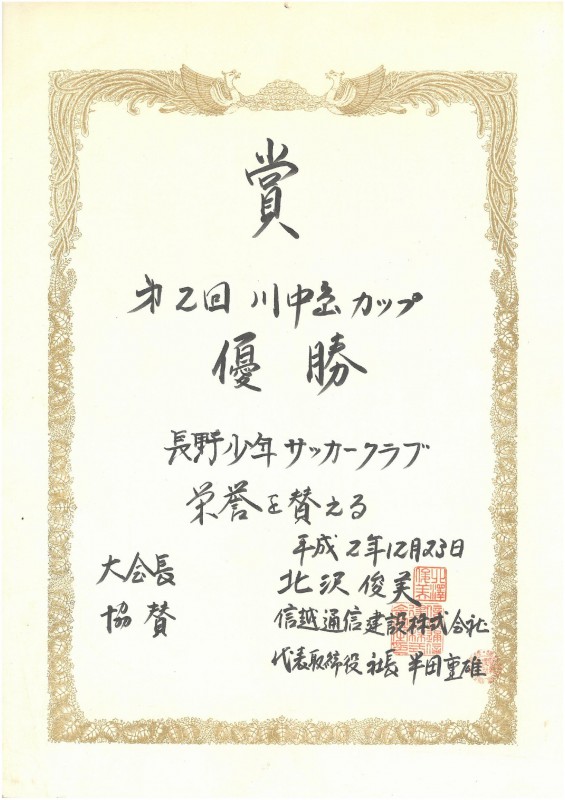 賞
第2回 川中島カップ
優勝
長野少年サッカークラブ
栄誉を賛える
平成2年12月23日
大会長 北沢俊美
協賛 信越通信建設株式会社
代表取締役社長 半田重雄